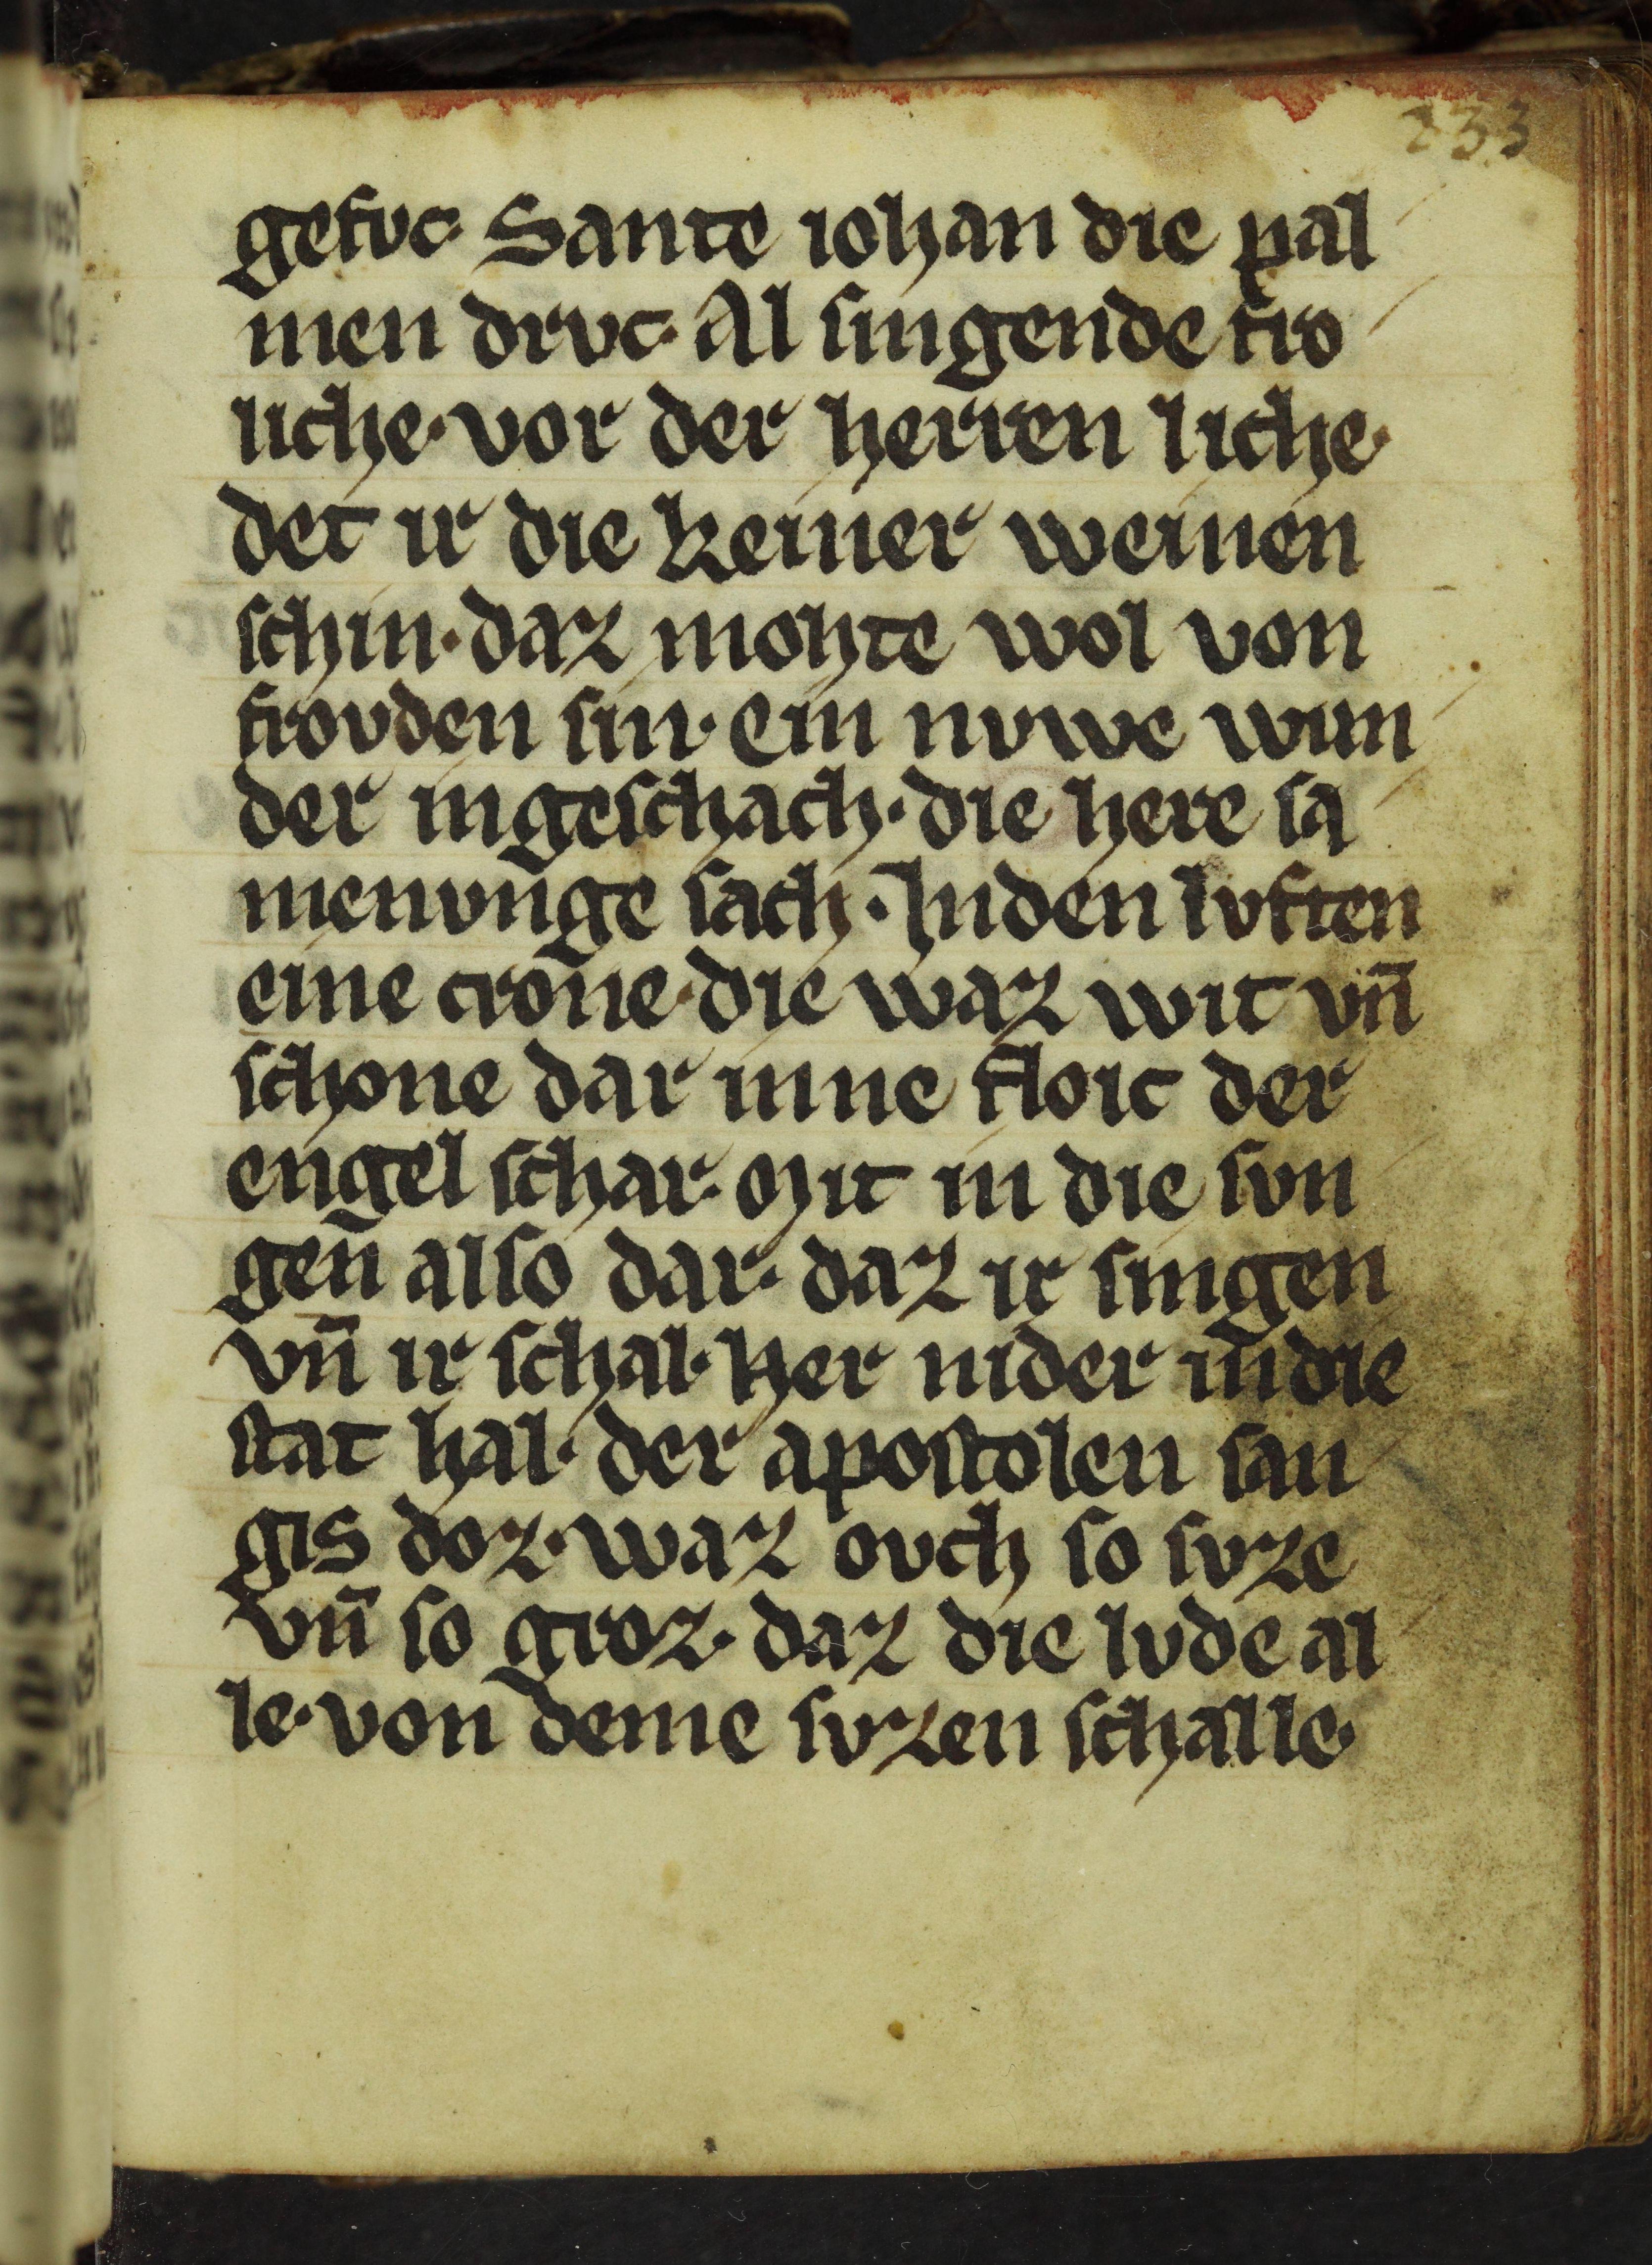 233
gefvc· Sante iohan die pal
men drvc· Al singende fro
liche· vor der herren liche·
det ir die keiner weinen
schin· daz mohte wol von
frovden sin· ein nvwe wun
der ingeschach· die here sa
menvnge sach· Inden lvften
eine crone· die waz wit vn̄
schone dar inne floic der
engel schar· Mit in die svn
gen also dar· daz ir singen
vn̄ ir schal· her nider in die
stat hal· der apostolen san
gis doz· waz ovch so svze
vn̄ so groz· daz die lvde al
le· von deme svzen schalle·